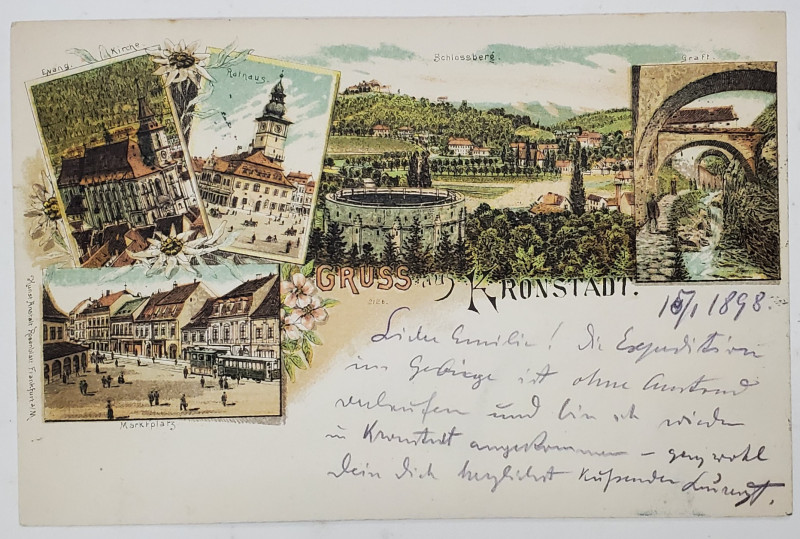 Evang. Kirche
Rathaus
Schlossberg
Graft
GRUSS AUS KRONSTADT.
15/1 1898.
Liebe Emilie! Die Expedition
im Gebirge ist ohne Anstand
verlaufen und bin ich wieder
in Kronstadt angekommen – ganz wohl
Dein dich herzlichst küssender
Marktplatz
Kunst Anstalt Rosenblatt Frankfurt a/M.